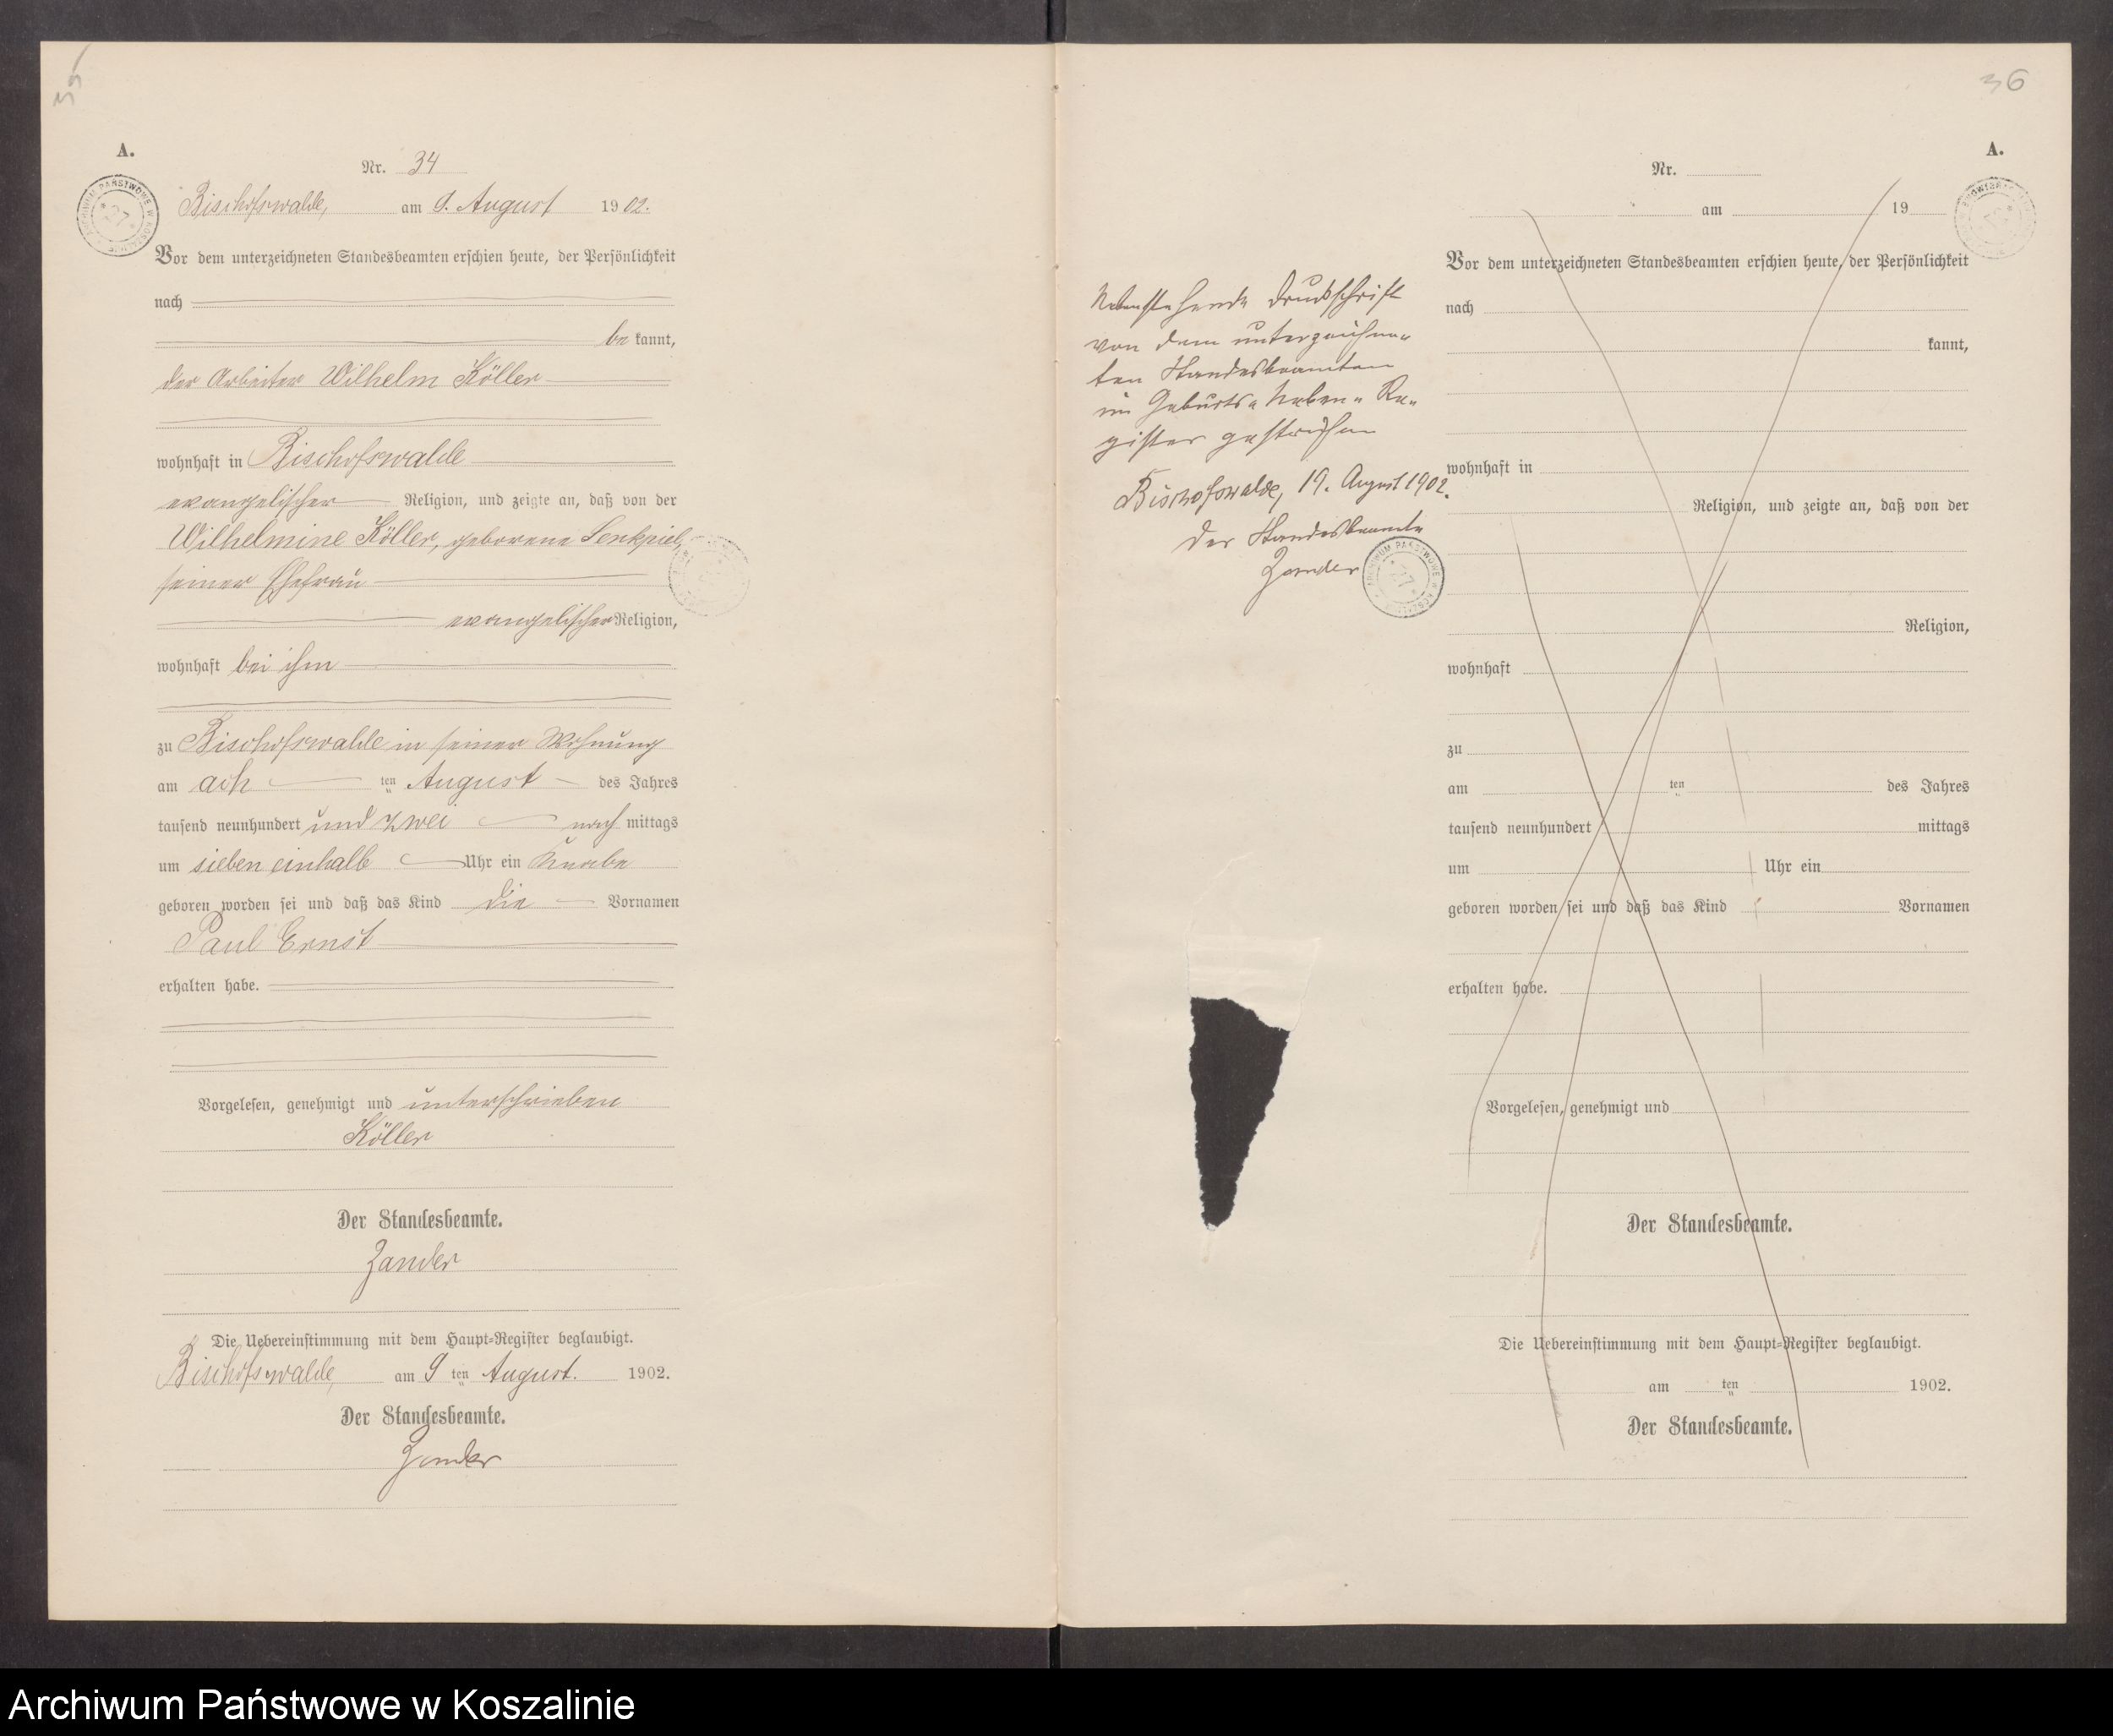 35
A.
Nr. 34
Bischofswalde, am 9. August 1902.
Vor dem unterzeichneten Standesbeamten erschien heute, der Persönlichkeit
nach
be kannt,
der Arbeiter Wilhelm Köller
wohnhaft in Bischofswalde
evangelischer Religion, und zeigte an, daß von der
Wilhelmine Köller, geborene Senkpiel,
seiner Ehefrau
evangelischer Religion,
wohnhaft bei ihm
zu Bischofswalde in seiner Wohnung
am ach ten August des Jahres
tausend neunhundert und zwei nach mittags
um sieben einhalb Uhr ein Knabe
geboren worden sei und daß das Kind die Vornamen
Paul Ernst
erhalten habe.
Vorgelesen, genehmigt und unterschrieben
Köller
Der Standesbeamte.
Zander
Die Uebereinstimmung mit dem Haupt-Register beglaubigt.
Bischofswalde, am 9 ten August. 1902.
Der Standesbeamte.
Zander
ARCHIWUM PAŃSTWOWE W KOSZALINIE
27
36
A.
Nr.
am 19
Vor dem unterzeichneten Standesbeamten erschien heute, der Persönlichkeit
nach
kannt,
wohnhaft in
Religion, und zeigte an, daß von der
Religion,
wohnhaft
zu
am ten des Jahres
tausend neunhundert mittags
um Uhr ein
geboren worden sei und daß das Kind Vornamen
erhalten habe.
Vorgelesen, genehmigt und
Der Standesbeamte.
Die Uebereinstimmung mit dem Haupt-Register beglaubigt.
am ten 1902.
Der Standesbeamte.
Nebenstehende Druckschrift
von dem unterzeichne-
ten Standesbeamten
im Geburts-Neben-Re-
gister gestrichen
Bischofswalde, 19. August 1902.
Der Standesbeamte
Zander
ARCHIWUM PAŃSTWOWE W KOSZALINIE
27
Archiwum Państwowe w Koszalinie